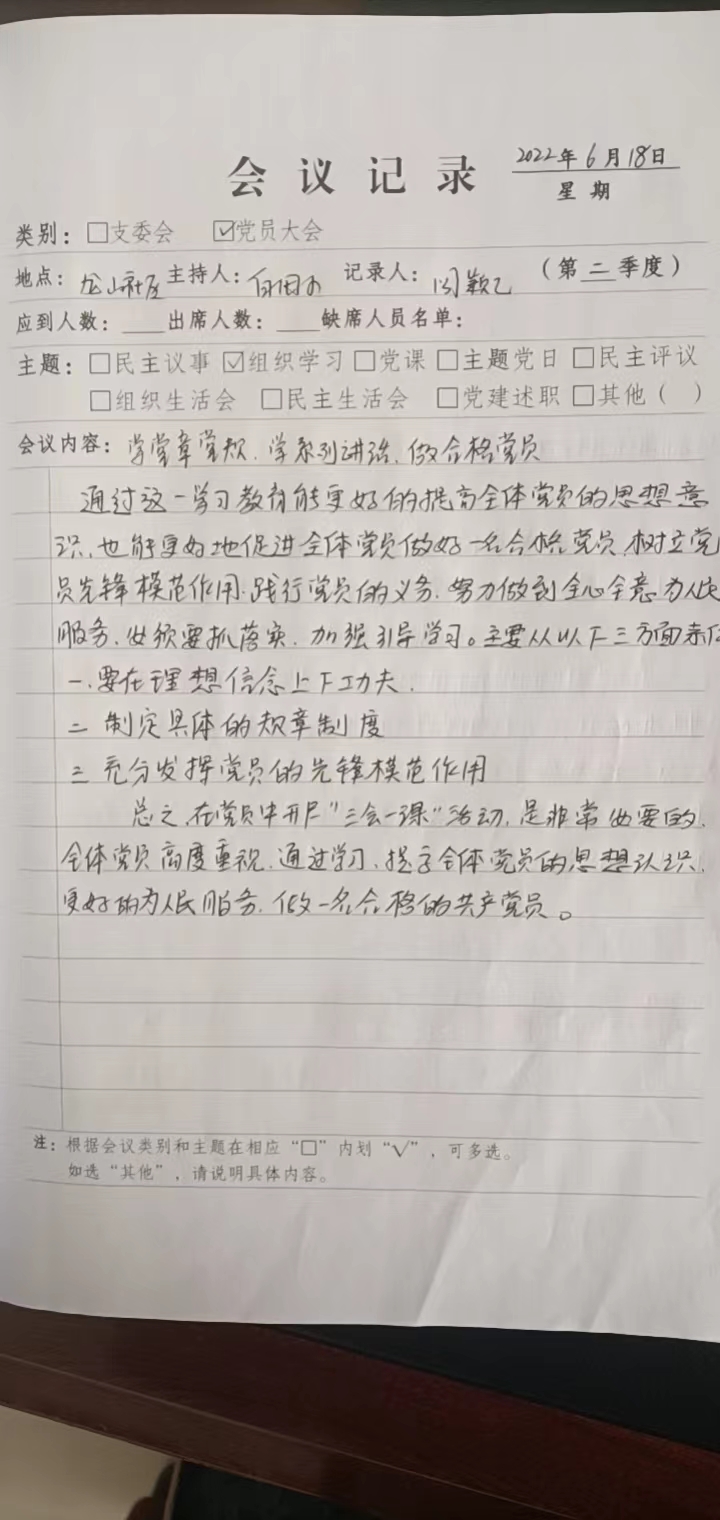 会议记录 2022年6月18日
星期
类别：□支委会 ☑党员大会
地点：龙山社区 主持人： 记录人： （第二季度）
应到人数：____出席人数：____缺席人员名单：
主题：□民主议事 ☑组织学习 □党课 □主题党日 □民主评议
□组织生活会 □民主生活会 □党建述职 □其他（ ）
会议内容：学党章党规、学系列讲话、做合格党员
通过这一学习教育能更好的提高全体党员的思想意
识、也能更好地促进全体党员做好一名合格党员、树立党
员先锋模范作用、践行党员的义务、努力做到全心全意为人民
服务、必须要抓落实、加强引导学习。主要从以下三方面来
一、要在理想信念上下功夫、
二 制定具体的规章制度
三 充分发挥党员的先锋模范作用
总之、在党员中开展"三会一课"活动、是非常必要的、
全体党员高度重视、通过学习、提高全体党员的思想认识、
更好的为人民服务、做一名合格的共产党员。
注：根据会议类别和主题在相应“□”内划“√”，可多选。
如选“其他”，请说明具体内容。